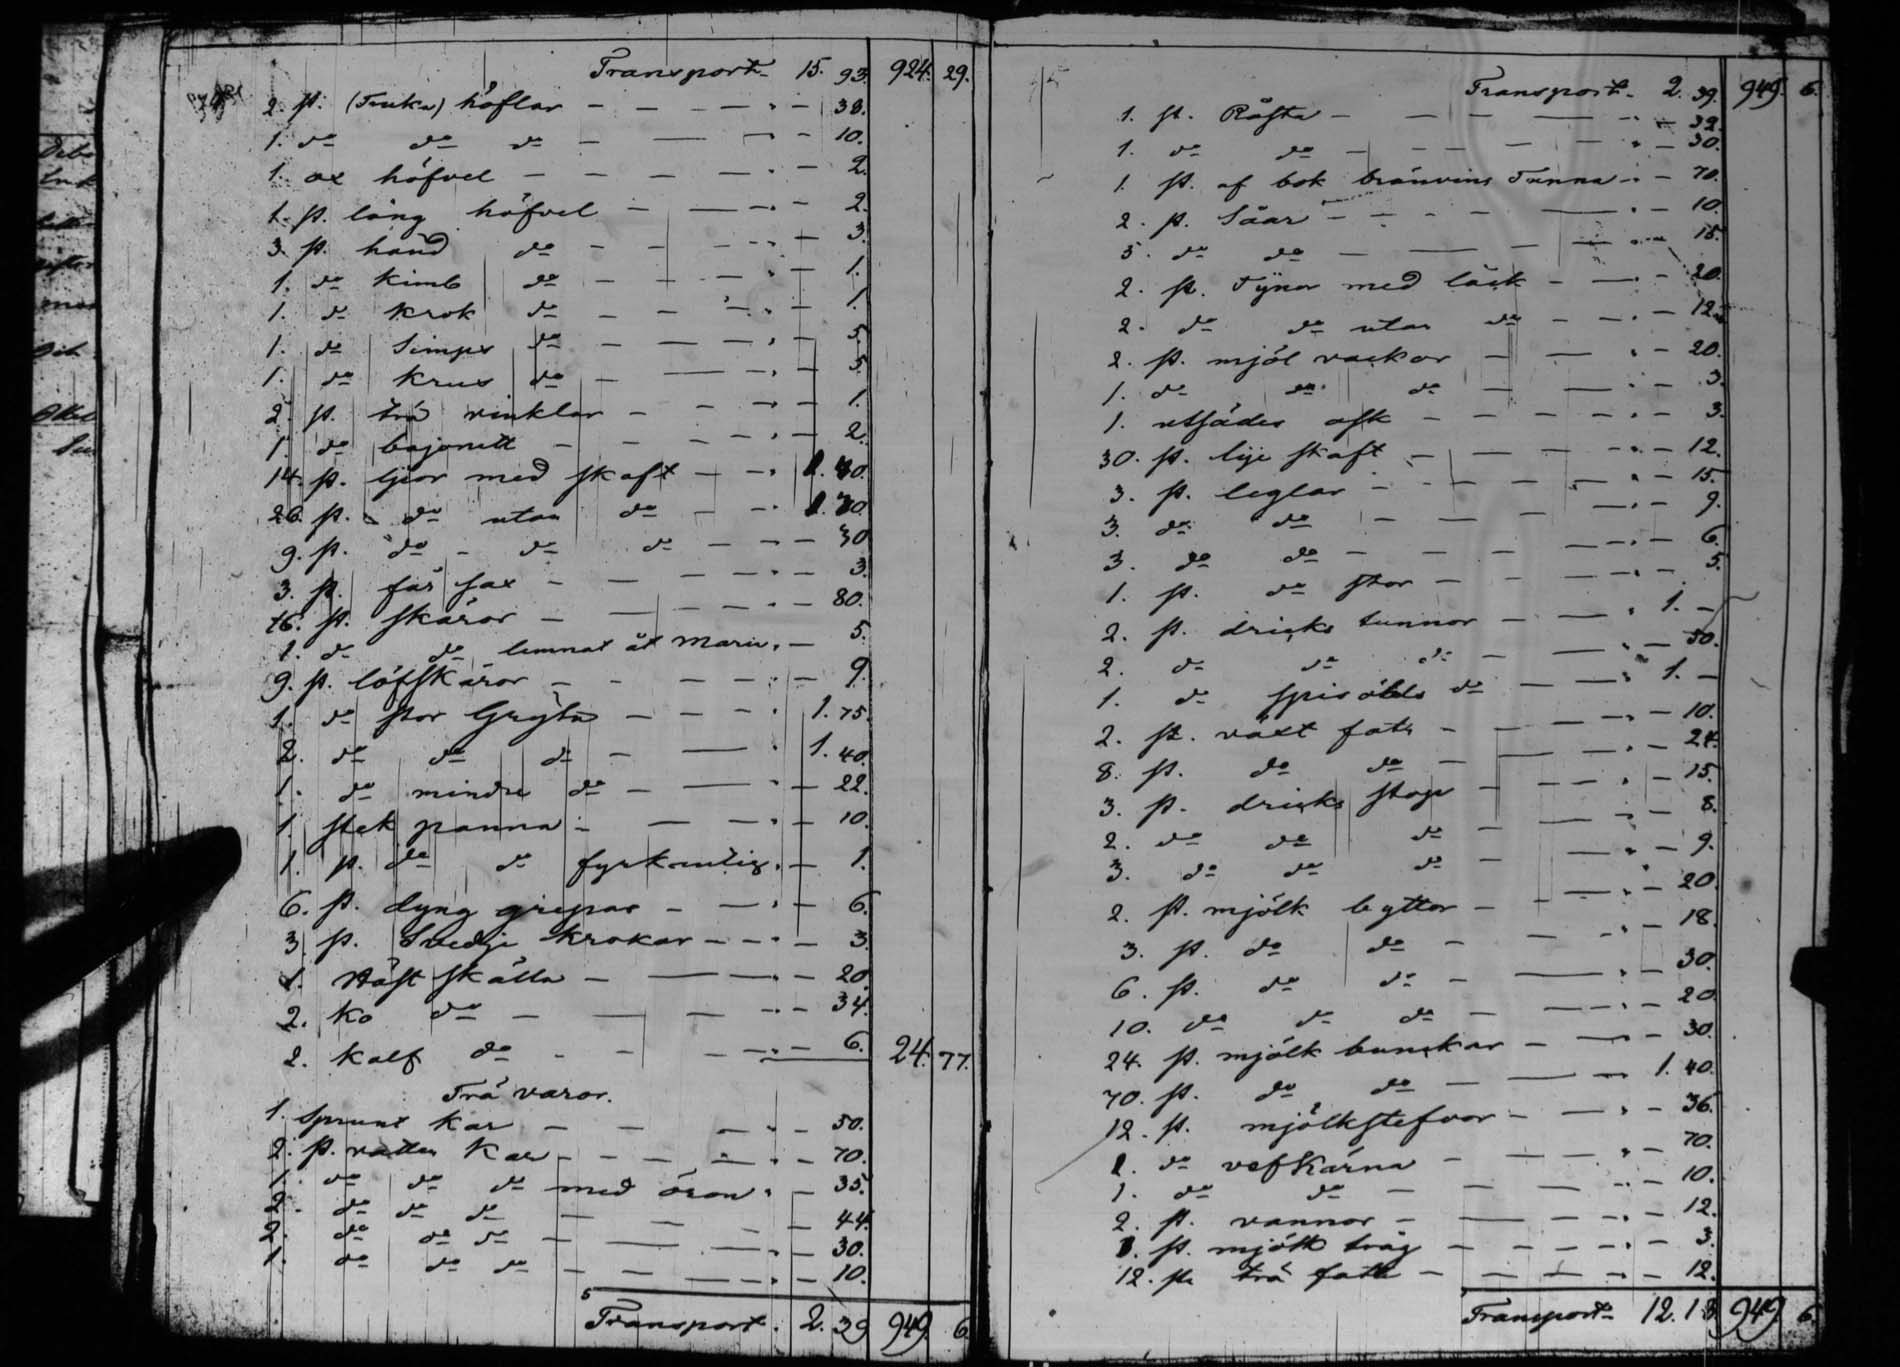 Transport 15. 93. 924. 29.
2. st. (Truka) höflar — — 38.
1. do do do — — 10.
1. ax höfvel — — 2.
1. st. lång höfvel — — 2.
3. st. hand do — — 3.
1. do kimb do — — 1.
1. do krok do — — 1.
1. do Simps do — — 5.
1. do krus do — — 5.
2. st. trä vinklar — — 1.
1. do bajonett — — 2.
14. st. ljeor med skaft — —
26. st. do utan do — —
9. st. do do do — — 30
3. st. får sax — — 3.
16. st. skäror — — 80.
1. do do lemnat åt Maria. — 5.
9. st. löfskäror — — 9.
1. do stor Gryta — 1.75.
2. do do do — 1.40.
1. do mindre do — — 22.
1 stek panna — — 10.
1. st. do do fyrkantig. — 1.
6. st. dyng grepar — — 6.
3 st. Svedje krokar — — 3.
1. Häst skälla — — 20.
2. ko do — — 34.
2. kalf do — — 6. 24. 77.
Trä varor.
1. Sprunt kar — — 50.
2. st. vatten kar — — 70.
1. do do do med öron. — 35.
2. do do do — — 44.
2. do do do — — 30.
1. do do do — — 10.
Transport. 2. 39 949. 6.
Transport. 2. 39. 949. 6.
1. st. Rösta — — 32.
1. do do — — 30.
1. st. af bok bränvins Tunna — — 70.
2. st. Såar — — 10.
5. do do — — 15.
2. st. Tÿnor med låck — — 20.
2. do do utan do — — 12.
2. st. mjöl vackor — — 20.
1. do do do — — 3.
1. utsädes ask — — 3.
30. st. lije skaft — — 12.
3. st. leglar — — 15.
3. do do — — 9.
3. do do — — 6.
1. st. do stor — — 5.
2. st. dricks tunnor — 1. —
2. do do do — — 50.
1. do spisöls do — 1. —
2. st. växt fat — — 10.
8. st. do do — — 24.
3. st. dricks stop — — 15.
2. do do do — — 8.
3. do do do — — 9.
2. st. mjölk byttor — — 20.
3. st. do do — — 18.
6. st. do do — — 30.
10. do do do — — 20.
24. st. mjölk bunckar — — 30.
70. st. do do — 1. 40.
12. st. mjölkstefvor — — 36.
1. do vefkärna — — 70.
1. do do — — 10.
2. st. vannor — — 12.
st. mjölk tråg — — 3.
12. st. trä fat — — 12.
Transport 12. 13. 949. 6.